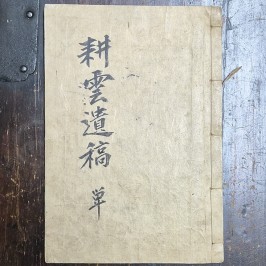 耕雲遺稿 単